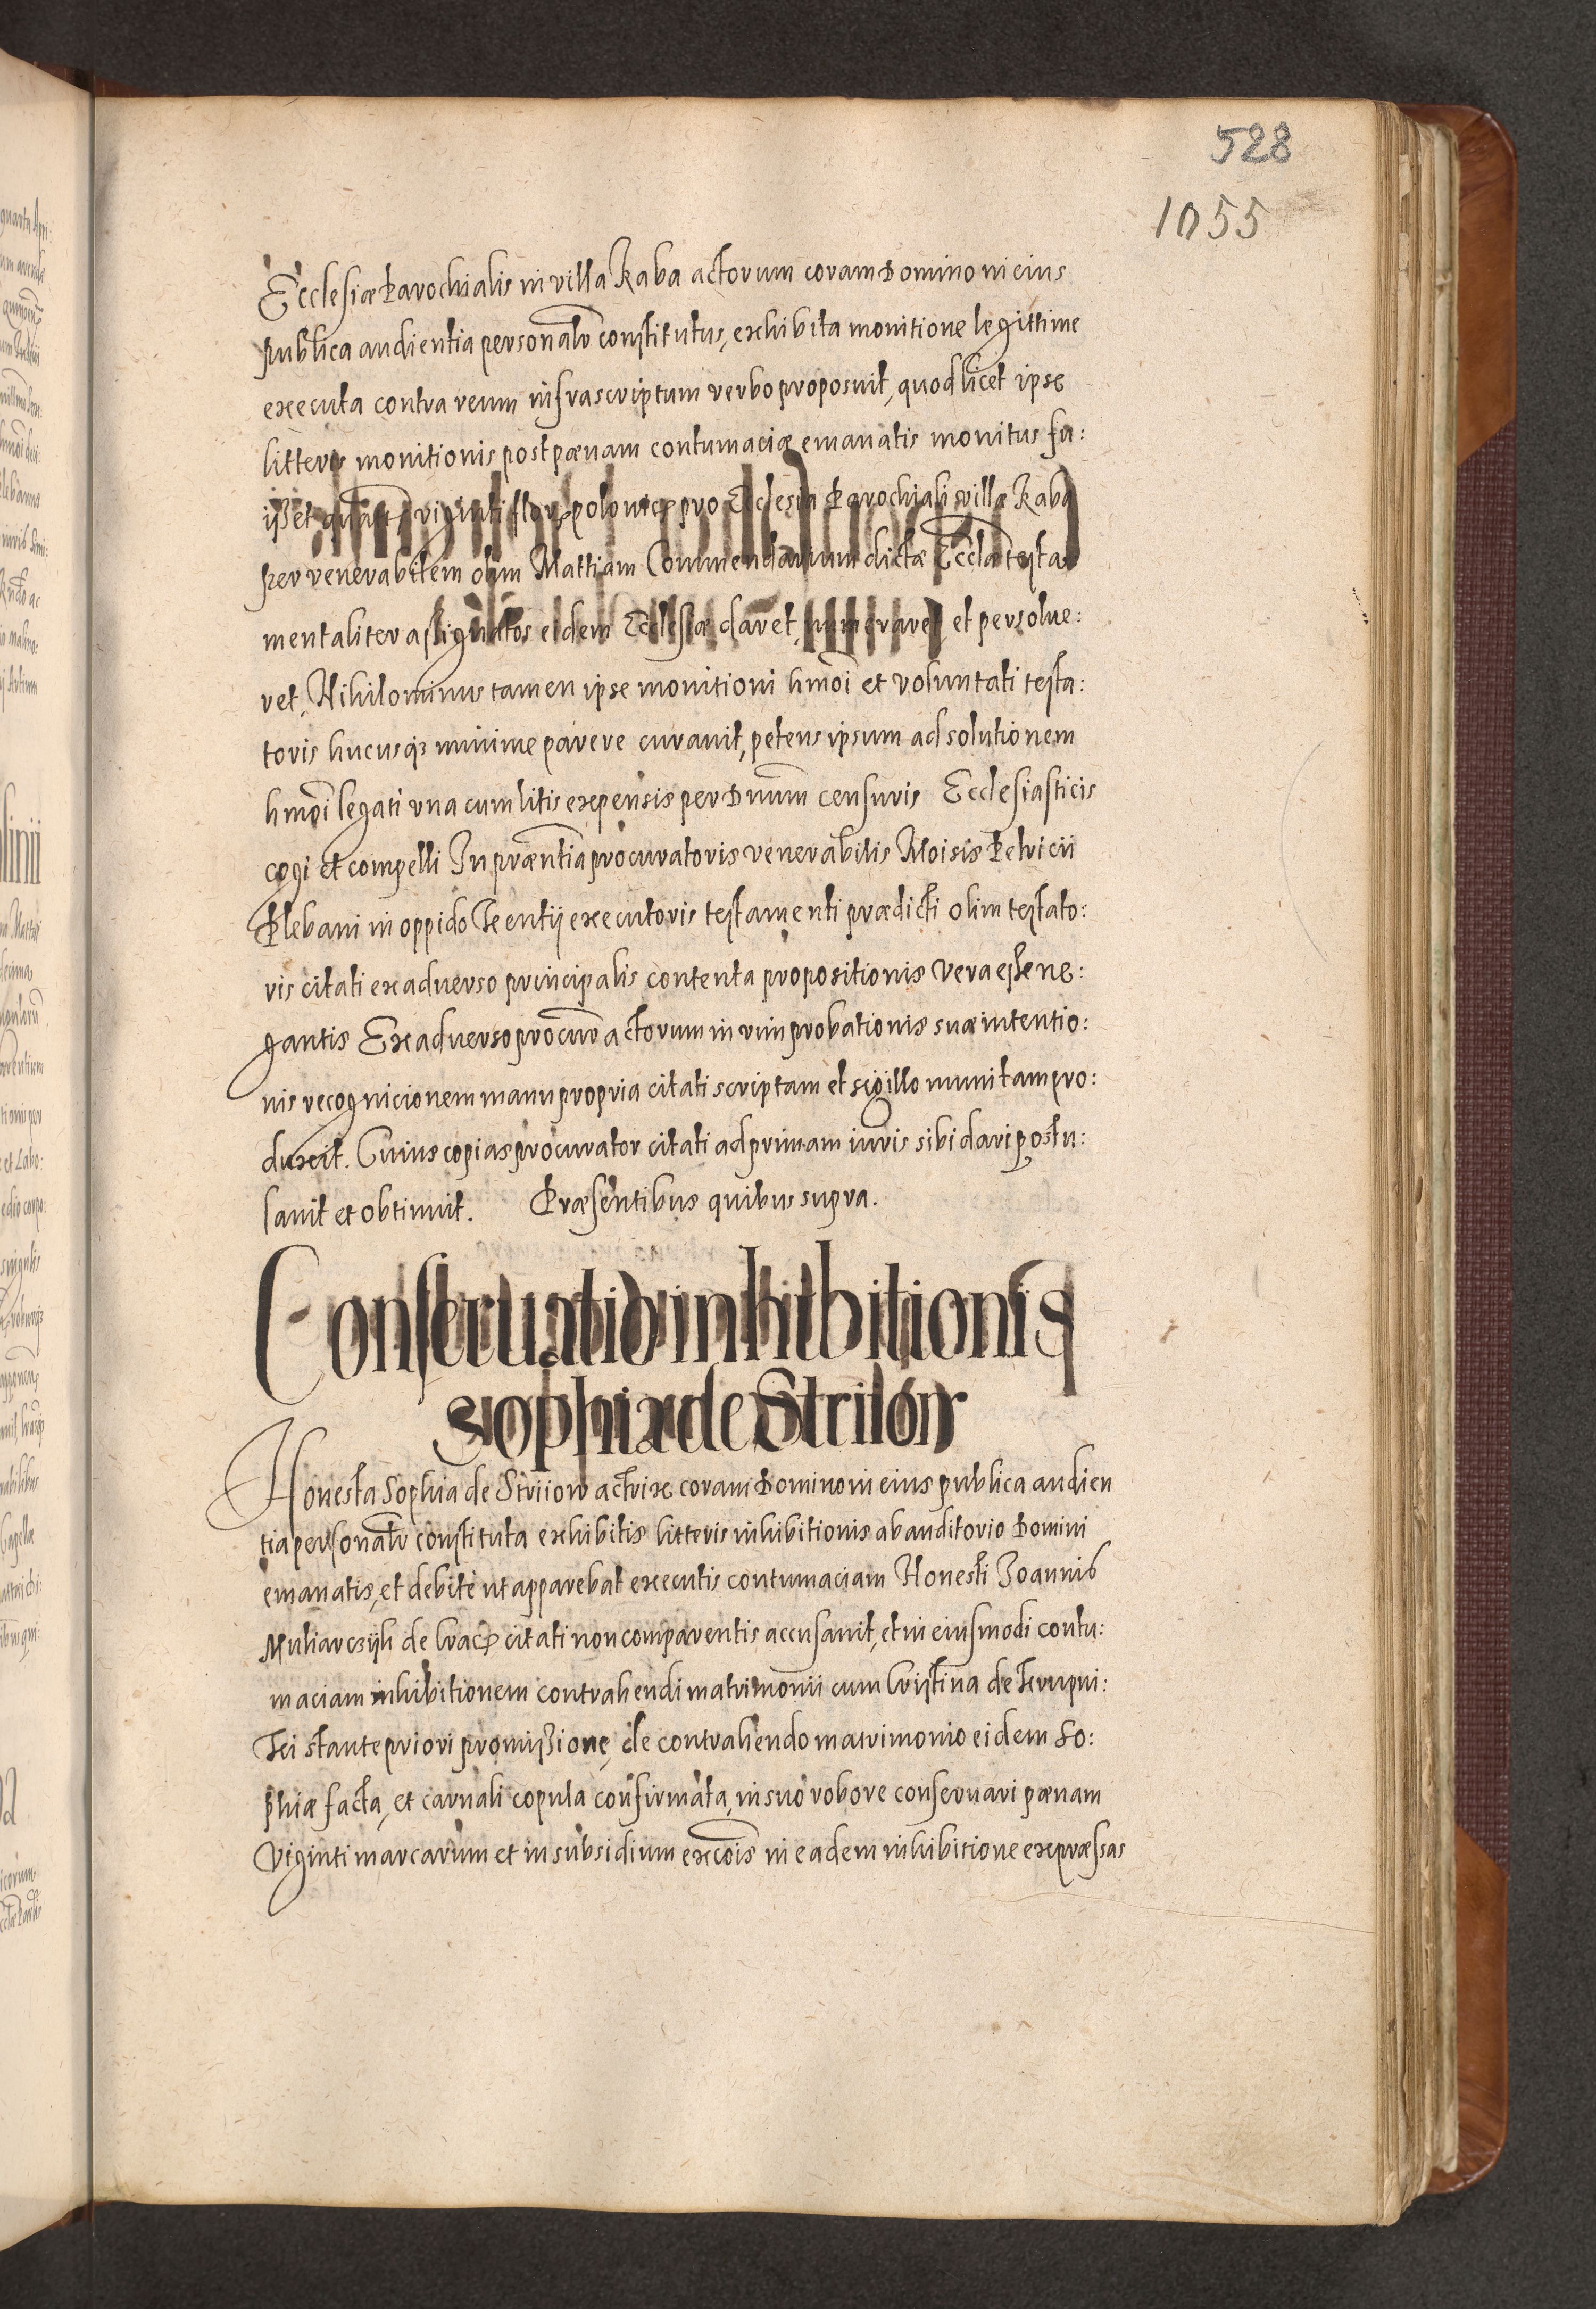 528
1055
Ecclesiæ Parochialis in villa Raba actorum coram Domino in eius
publica audientia personalr constitutus, exhibita monitione legittime
executa contra reum infrascriptum verbo proposuit, quod licet ipse
litteris monitionis post pænam contumaciæ emanatis monitus fu:
ißet viginti flor polonicæ pro Ecclesia Parochiali villæ Raba
per venerabilem olim Mattiam Commendarium dictæ Eccla testa
mentaliter assignatos eidem Ecclesiæ daret, numeraret, et persolue:
ret, Nihilominus tamen ipse monitioni hmoi et voluntati testa:
toris hucusqz minime parere curauit, petens ipsum ad solutionem
hmoi legati vna cum litis expensis per Dnum censuris Ecclesiasticis
cogi et compelli In præntia procuratoris venerabilis Moisis Petricii
Plebani in oppido executoris testamenti prædicti olim testato:
ris citati ex aduerso principalis contenta propositionis vera esse ne:
gantis Ex aduerso procur actorum in vim probationis suæ intentio:
nis recognicionem manu propria citati scriptam et sigillo munitam pro:
duxit. Cuius copias procurator citati ad primam iuris sibi dari postu:
lauit et obtinuit. Præsentibus quibus supra.
Conseruatio inhibitionis
Sophiæ de Striiow
Honesta Sophia de Striiow actrix coram Domino in eius publica audien
tia personalr constituta exhibitis litteris inhibitionis ab auditorio Domini
emanatis, et debite ut apparebat executis contumaciam Honesti Joannis
Muliarczyk de Crac citati non comparentis accusauit, et in eiusmodi contu:
maciam inhibitionem contrahendi matrimonii cum Cristina de
stante priori promißione, de contrahendo matrimonio eidem So:
phiæ facta, et carnali copula confirmata, in suo robore conseruari pænam
Viginti marcarum et in subsidium excois in eadem inhibitione expræssas